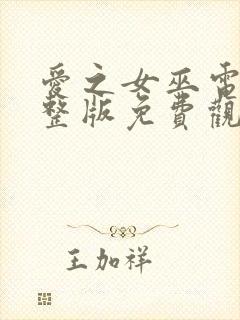 愛之女巫電
整版免費觀
王加祥